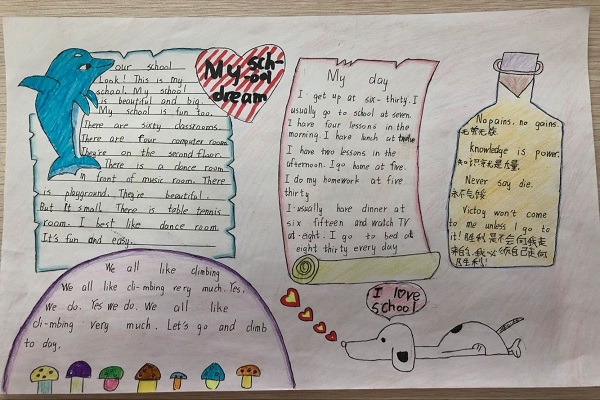 our school
Look! This is my
school. My school!
is beautiful and big.
My school is fun too.
There are sixty classrooms.
There are four computer room
They're on the second floor.
There is a dance room
in front of music room. There
is playground. They're beautiful.
But it small. There is table tennis
room. I best like dance room.
It's fun and easy.
My sch-
-ool
dream
My day
I get up at six-thirty. I
usually go to school at seven.
I have four lessons in the
morning I have lunch at twelve
I have two lessons in the
afternoon. I go home at five.
I do my homework at five
thirty
I usually have dinner at
six fifteen and watch TV
at eight. I go to bed at
eight thirty every day
No pains, no gains.
无劳无获
knowledge is power.
知识就是力量.
Never say die.
永不气馁
Victoy won't come
to me unless I go to
it! 胜利是不会向我走
来的,我必须自己走向
胜利!
We all like climbing
We all like cli-mbing very much. Yes,
We do. Yes we do. We all like
cli-mbing very much. Let's go and climb
to day.
I love
school